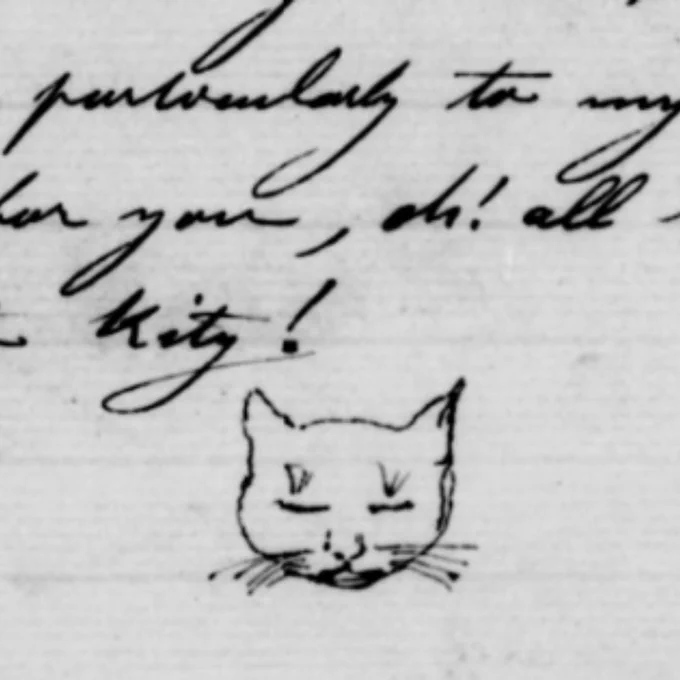 particularly to my
for you, oh! all
Kity!